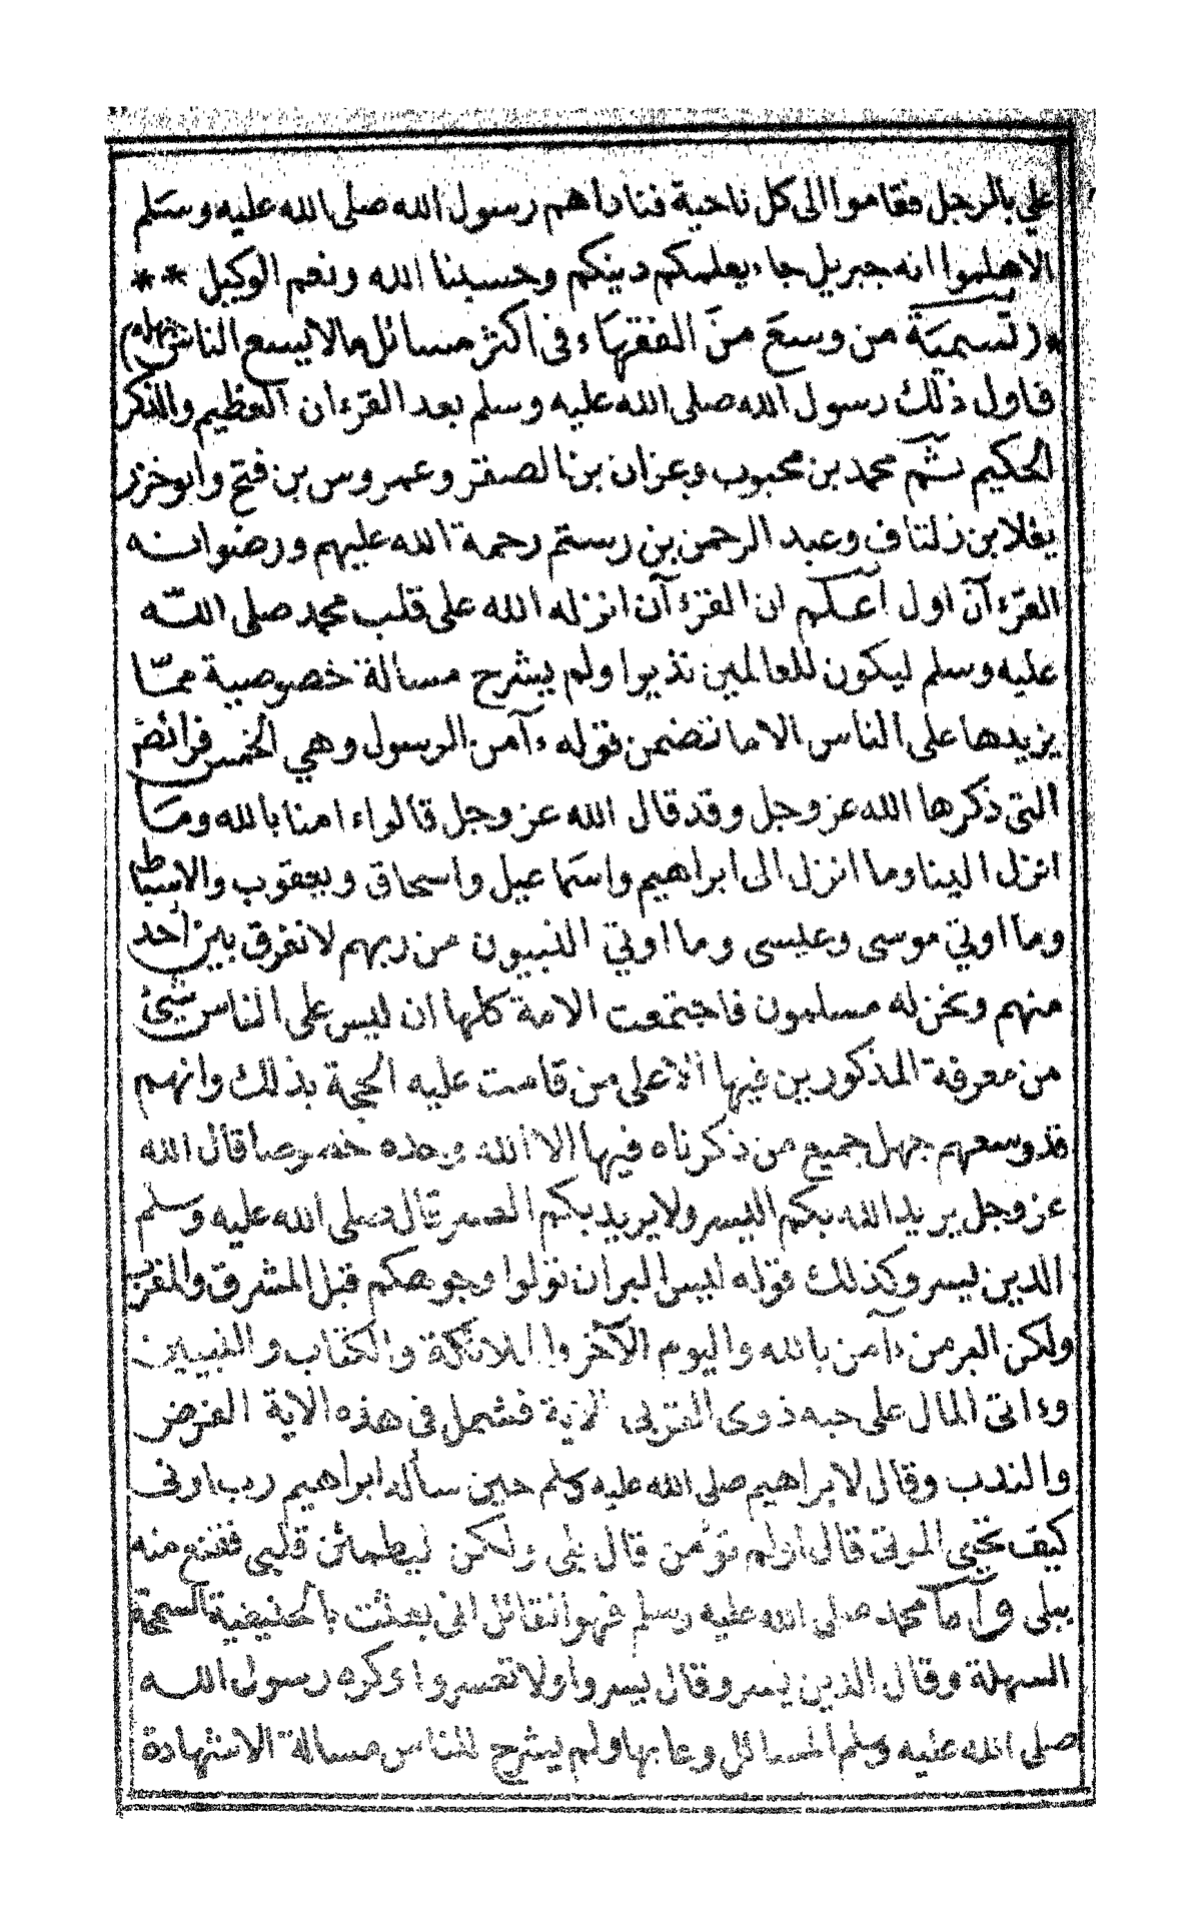 علي بالرجل فقاموا الى كل ناحية فناداهم رسول الله صلى الله عليه وسلم
الا هلموا انه جبريل جاء يعلمكم دينكم وحسبنا الله ونعم الوكيل **
* (تسمية من وسع من الفقهاء في اكثر مسائل ما لا يسع الناس جهله)
فاول ذلك رسول الله صلى الله عليه وسلم بعد القرءان العظيم والذكر
الحكيم ثم محمد بن محبوب وعزان بن الصقر وعمروس بن فتح وابو خزر
يغلا بن زلتاف وعبد الرحمن بن رستم رحمة الله عليهم ورضوانه
القرءآن اول اعكم ان القرءآن انزله الله على قلب محمد صلى الله
عليه وسلم ليكون للعالمين نذيرا ولم يشرح مسالة خصوصية ممّا
يزيدها على الناس الا ما تضمن قوله ءآمن الرسول وهي الخمس فرائض
التى ذكرها الله عز وجل وقد قال الله عز وجل قالواء امنا بالله وما
انزل الينا وما انزل الى ابراهيم واسماعيل واسحاق ويعقوب والاسباط
وما اوتي موسى وعيسى وما اوتي النبيون من ربهم لا نفرق بين أحد
منهم ونحن له مسلمون فاجتمعت الامة كلها ان ليس على الناس شيئ
من معرفة المذكورين فيها الا على من قامت عليه الحجة بذلك وانهم
قد وسعهم جهل جميع من ذكرناه فيها الا الله وحده خصوصا قال الله
عز وجل يريد الله بكم اليسر ولا يريد بكم العسر قال صلى الله عليه وسلم
الدين يسر وكذلك قوله ليس البر ان تولوا وجوهكم قبل المشرق والمغرب
ولكن البر من ءآمن بالله واليوم الآخر والملائكة والكتاب والنبيين
وءاتى المال على حبه ذوى القربى الاية فشمل في هذه الاية الفرض
والندب وقال لابراهيم صلى الله عليه وسلم حين سأله ابراهيم رب ارنى
كيف تحيي الموتى قال اولم تؤمن قال بلى ولكن ليطمئن قلبي فقنع منه
ببلى وأما محمد صلى الله عليه وسلم فهو القائل انى بعثت بالحنيفية السمحة
السهلة وقال الدين يسر وقال يسروا ولا تعسروا وكره رسول الله
صلى الله عليه وسلم المسائل وعابها ولم يشرح للناس مسالة الا شهادة